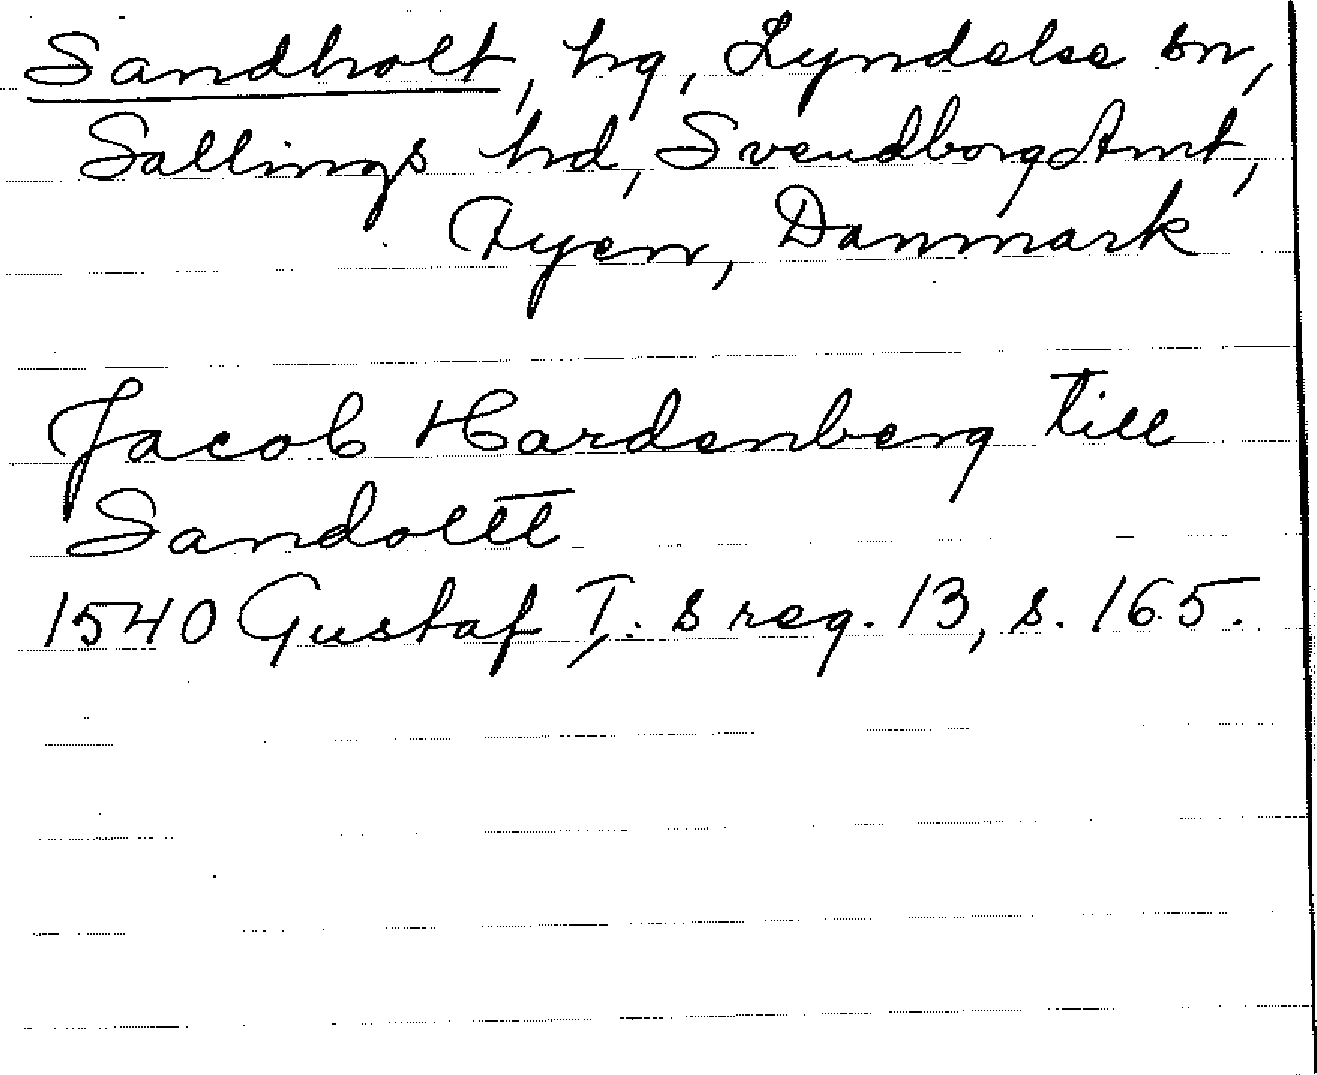 Sandholt, hg, Lyndelse sn,
Sallings hd, Svendborg Amt,
Fyen, Danmark
Jacob Hardenberg till
Sandoltt
1540 Gustaf I:s reg. 13, s. 165.